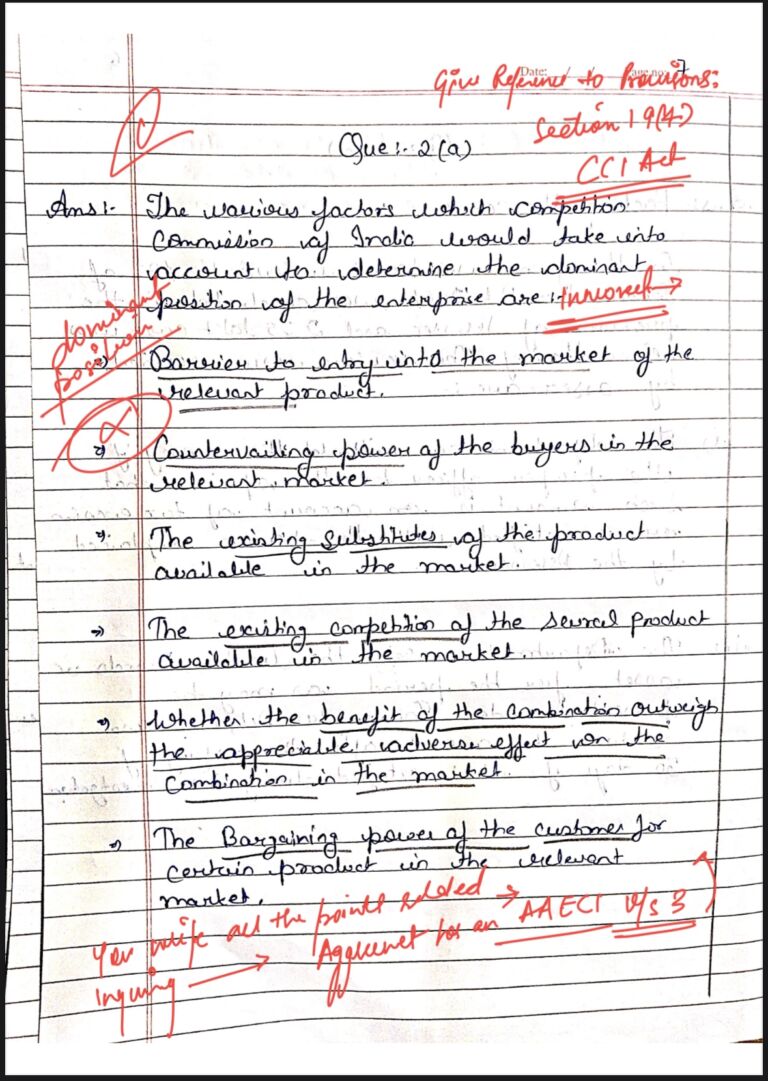 Give Reference to Provisions:
Date:
Page no. 7
Section 19(4)
CCI Act
Que:- 2(a)
Ans:- The various factors which competition
Commission of India would take into
account to determine the dominant
position of the enterprise are:-
dominant
position
Barrier to entry into the market of the
relevant product.
Countervailing power of the buyers in the
relevant market.
The existing substitutes of the product
available in the market.
The existing competition of the product
available in the market.
Whether the benefit of the combination outweigh
the appreciable adverse effect on the
Combination in the market.
The Bargaining power of the customer for
certain product in the relevant
market.
You all the points added →
Inquiring → for an AAEC u/s 3